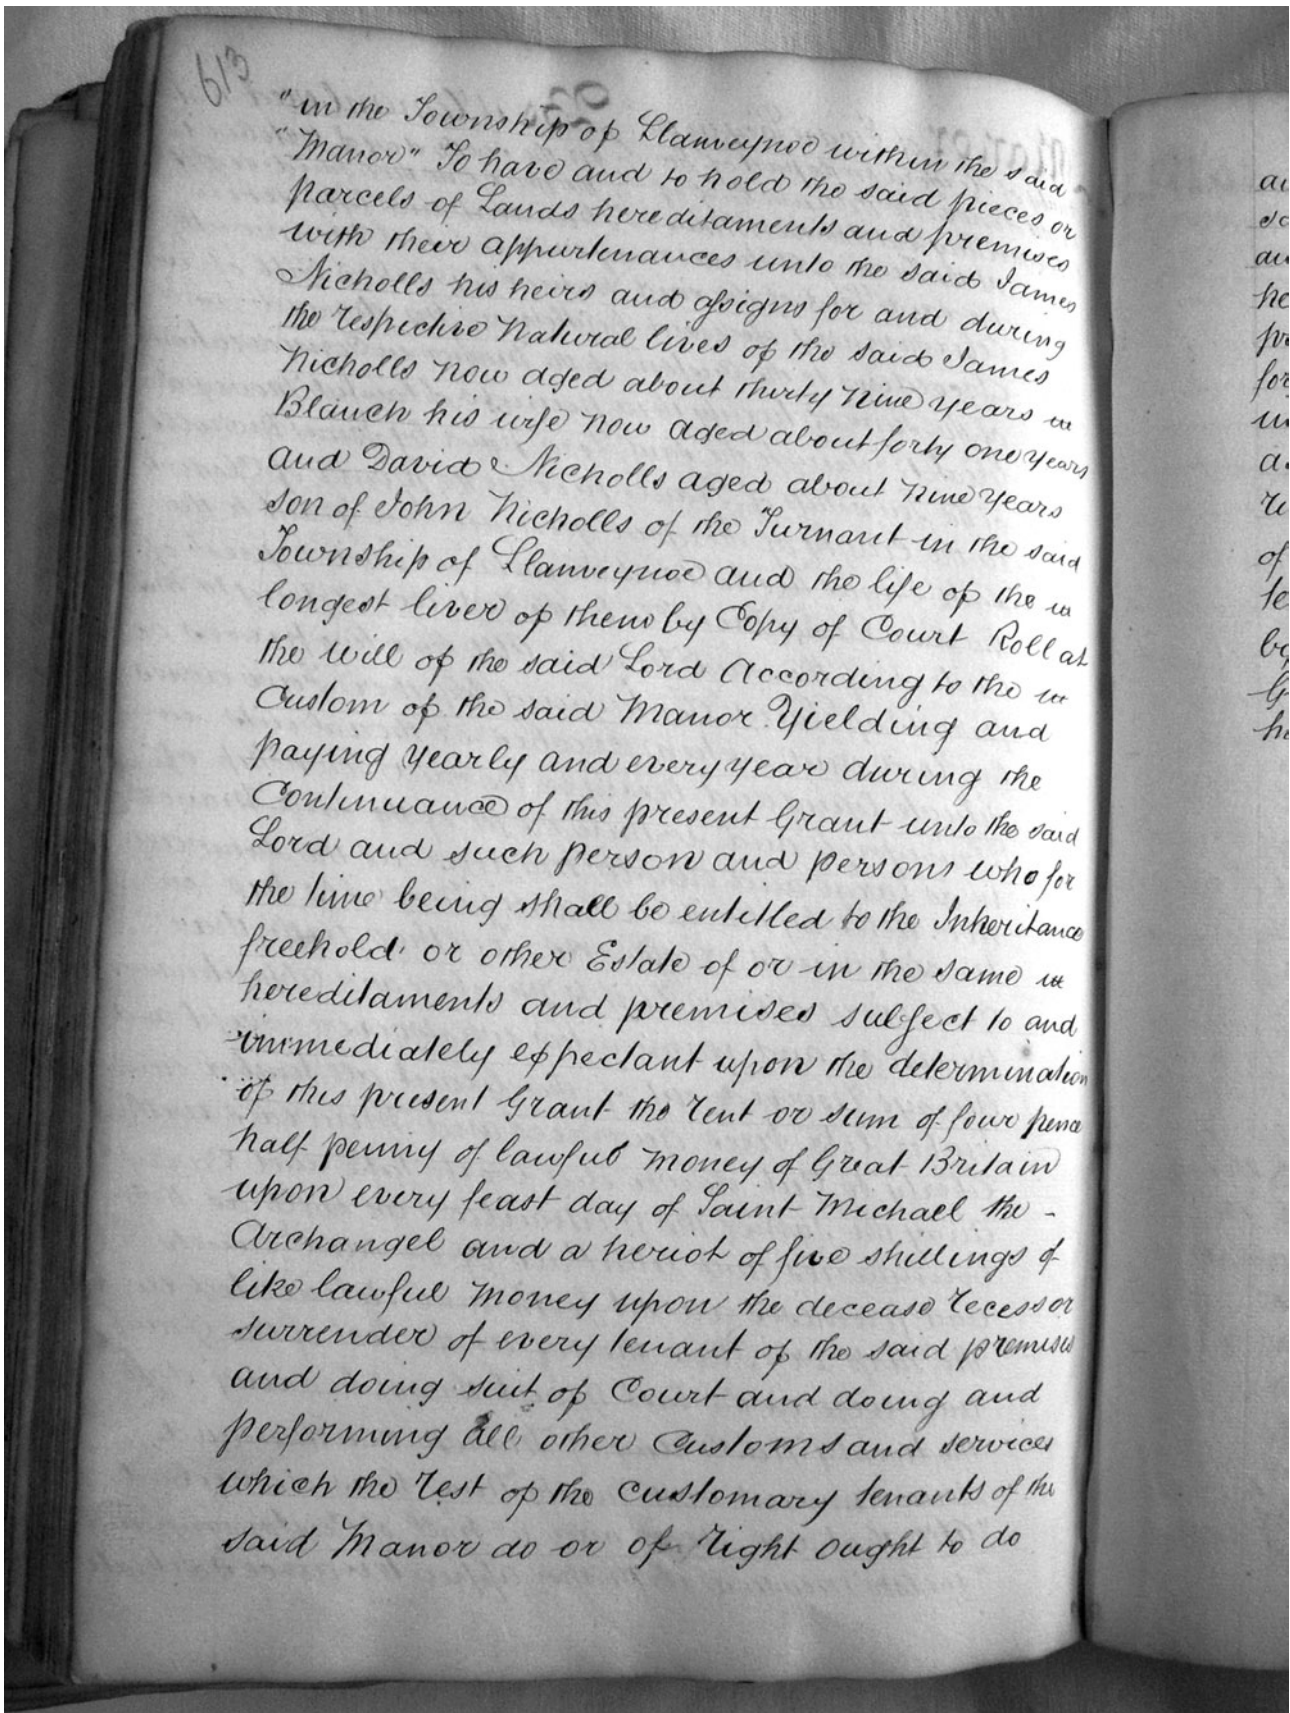 613
"in the Township of Llanveynoe within the said
"Manor" To have and to hold the said pieces or
parcels of Lands hereditaments and premises
with their appurtenances unto the said James
Nicholls his heirs and assigns for and during
the respective Natural lives of the said James
Nicholls now aged about thirty nine years
Blanch his wife now aged about forty one years
and David Nicholls aged about nine years
son of John Nicholls of the Turnant in the said
Township of Llanveynoe and the life of the
longest liver of them by Copy of Court Roll at
the will of the said Lord According to the
Custom of the said Manor Yielding and
paying yearly and every year during the
Continuance of this present Grant unto the said
Lord and such person and persons who for
the time being shall be entitled to the Inheritance
freehold or other Estate of or in the same
hereditaments and premises subject to and
immediately expectant upon the determination
of this present Grant the rent or sum of four pence
half penny of lawful money of Great Britain
upon every feast day of Saint Michael the -
Archangel and a heriot of five shillings of
like lawful money upon the decease recess or
surrender of every tenant of the said premises
and doing suit of Court and doing and
performing all other Customs and services
which the rest of the customary tenants of the
said Manor do or of right ought to do